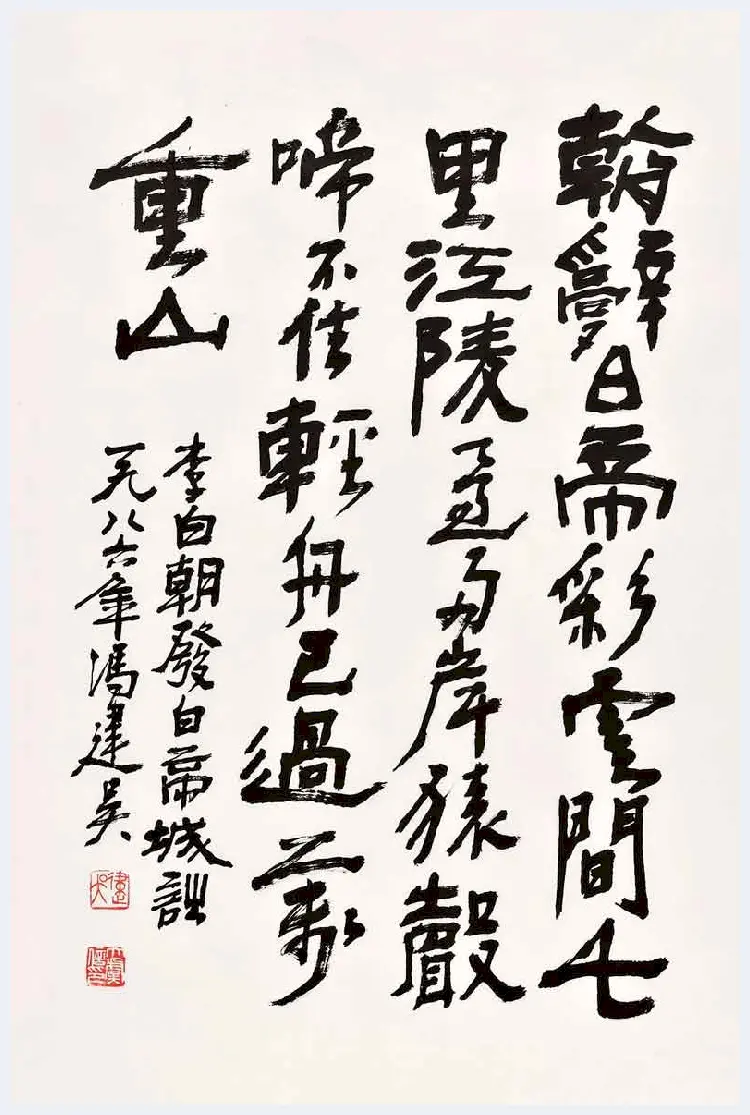 朝辭白帝彩雲間千
里江陵一日還兩岸猿聲
啼不住輕舟已過萬
重山
李白朝發白帝城詩
一九八六年馮建吳
建吳